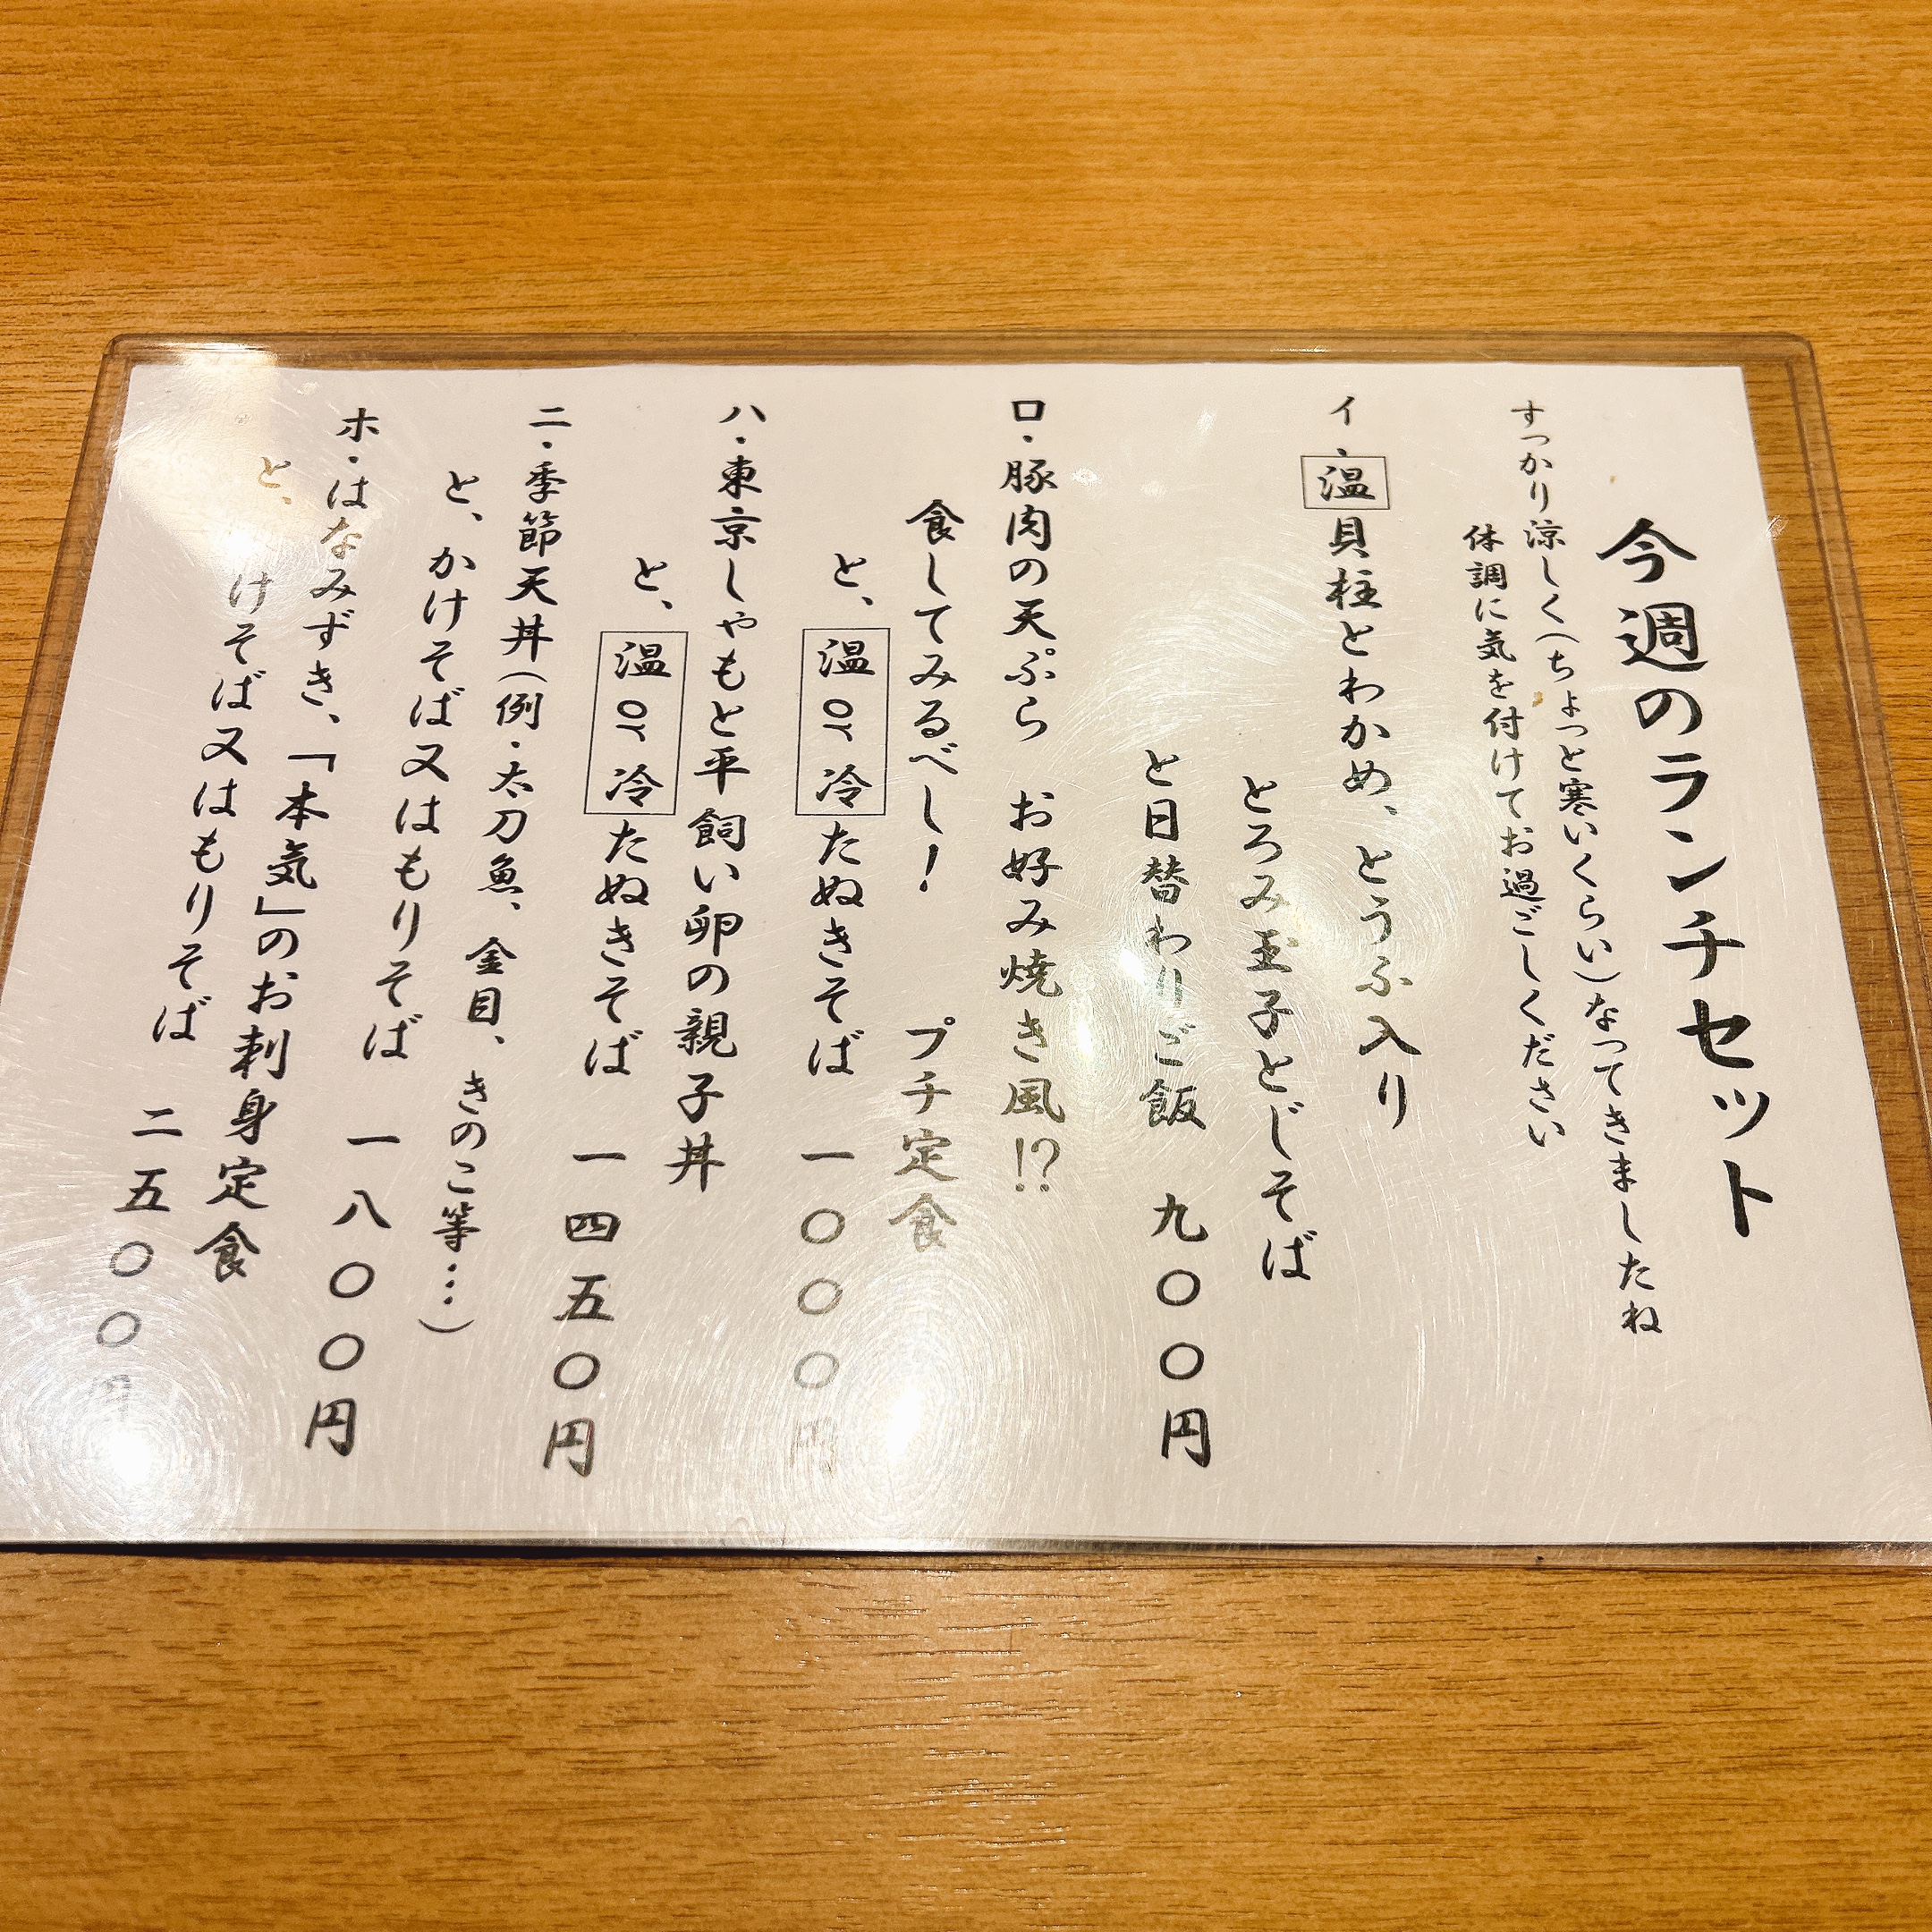 今週のランチセット
すっかり涼しく(ちょっと寒いくらい)なってきましたね
体調に気を付けてお過ごしください
イ・温貝柱とわかめ、とうふ入り
とろみ玉子とじそば
と日替わりご飯 九〇〇円
ロ・豚肉の天ぷら お好み焼き風!?
食してみるべし! プチ定食
と、温or冷たぬきそば 一〇〇〇円
ハ・東京しゃもと平飼い卵の親子丼
と、温or冷たぬきそば 一四五〇円
ニ・季節天丼(例・太刀魚、金目、きのこ等…)
と、かけそば又はもりそば 一八〇〇円
ホ・はなみずき、「本気」のお刺身定食
と、 けそば又はもりそば 二五〇〇円